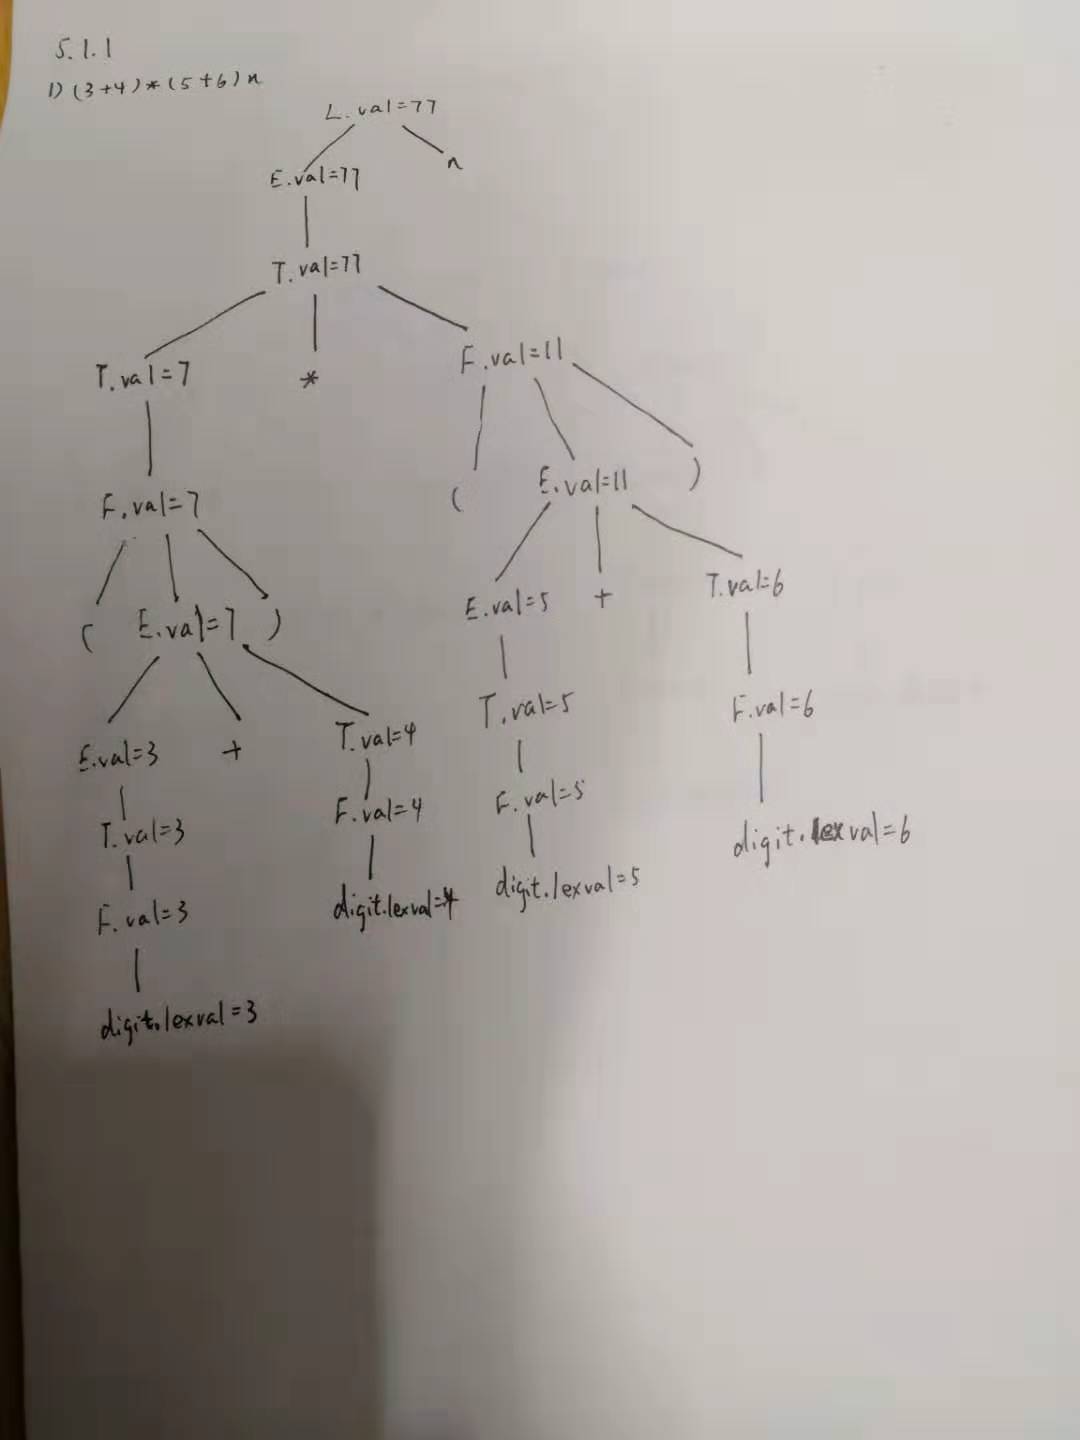 5.1.1
1) (3+4)*(5+6)n
L.val=77
E.val=77 n
T.val=77
T.val=7 * F.val=11
( E.val=11 )
F.val=7
E.val=5 + T.val=6
( E.val=7 )
T.val=5 F.val=6
E.val=3 + T.val=4
F.val=5
T.val=3 F.val=4 digit.lexval=6
digit.lexval=4 digit.lexval=5
F.val=3
digit.lexval=3